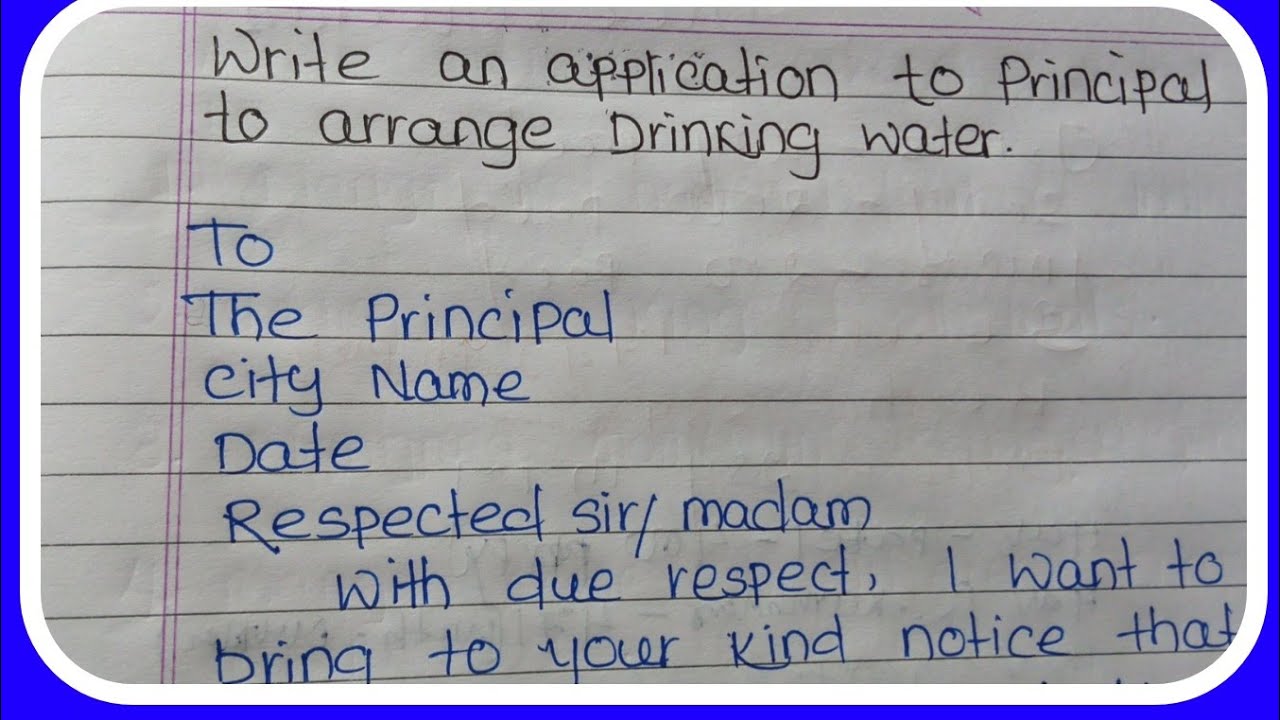 Write an application to Principal
to arrange Drinking water.
To
The Principal
City Name
Date
Respected sir/ madam
With due respect, I want to
bring to your kind notice that